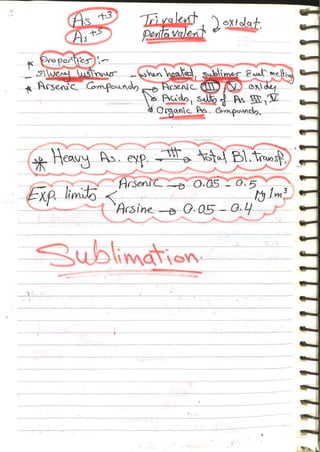 As +3 Trivalent
As +5 Pentavalent 2 oxidat.
* Properties :-
- Silvery lustrous - when heated, sublimes ē out melting
* Arsenic Compounds → Arsenic III / V oxides
→ Acids, salts of As III, V
→ Organic As. Compounds.
* Heavy As. exp. → ttt → total Bl. transf.
Exp. limits
Arsenic → 0.05 - 0.5
Arsine → 0.05 - 0.4
/m³
Sublimation.